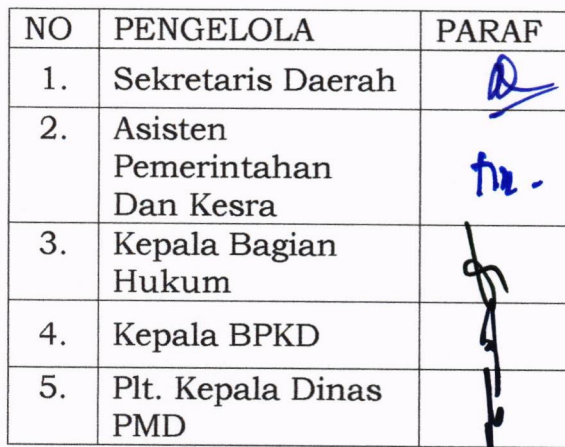 NO PENGELOLA PARAF
1. Sekretaris Daerah
2. Asisten
Pemerintahan
Dan Kesra
3. Kepala Bagian
Hukum
4. Kepala BPKD
5. Plt. Kepala Dinas
PMD